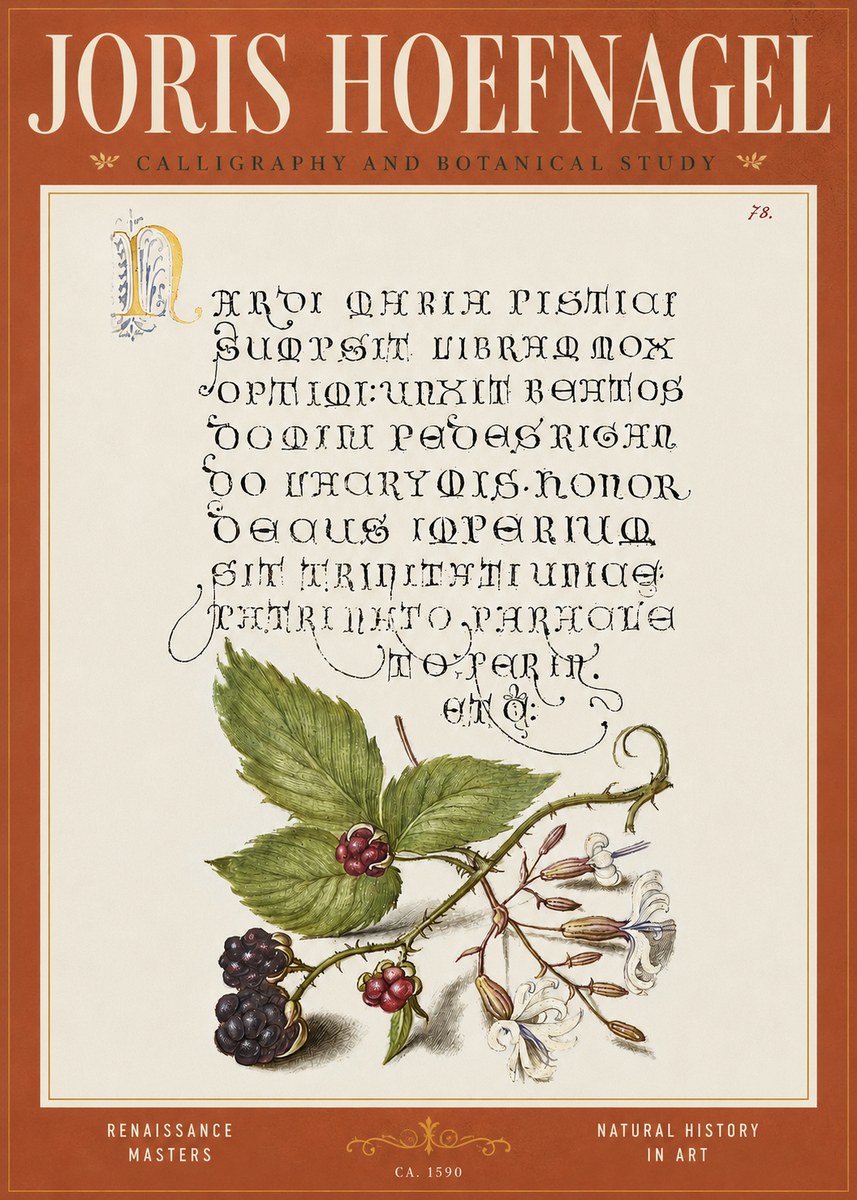 JORIS HOEFNAGEL
CALLIGRAPHY AND BOTANICAL STUDY
78.
NARDI MARIA PISTICI
SUMPSIT LIBRAM MOX
OPTIMI: UNXIT BEATOS
DOMINI PEDES RIGAN
DO LACRYMIS. HONOR
DECUS IMPERIUM
SIT TRINITATI UNICE
PATRI NATO, PARACLE
TO; PER IN.
ET Q:
RENAISSANCE
MASTERS
CA. 1590
NATURAL HISTORY
IN ART